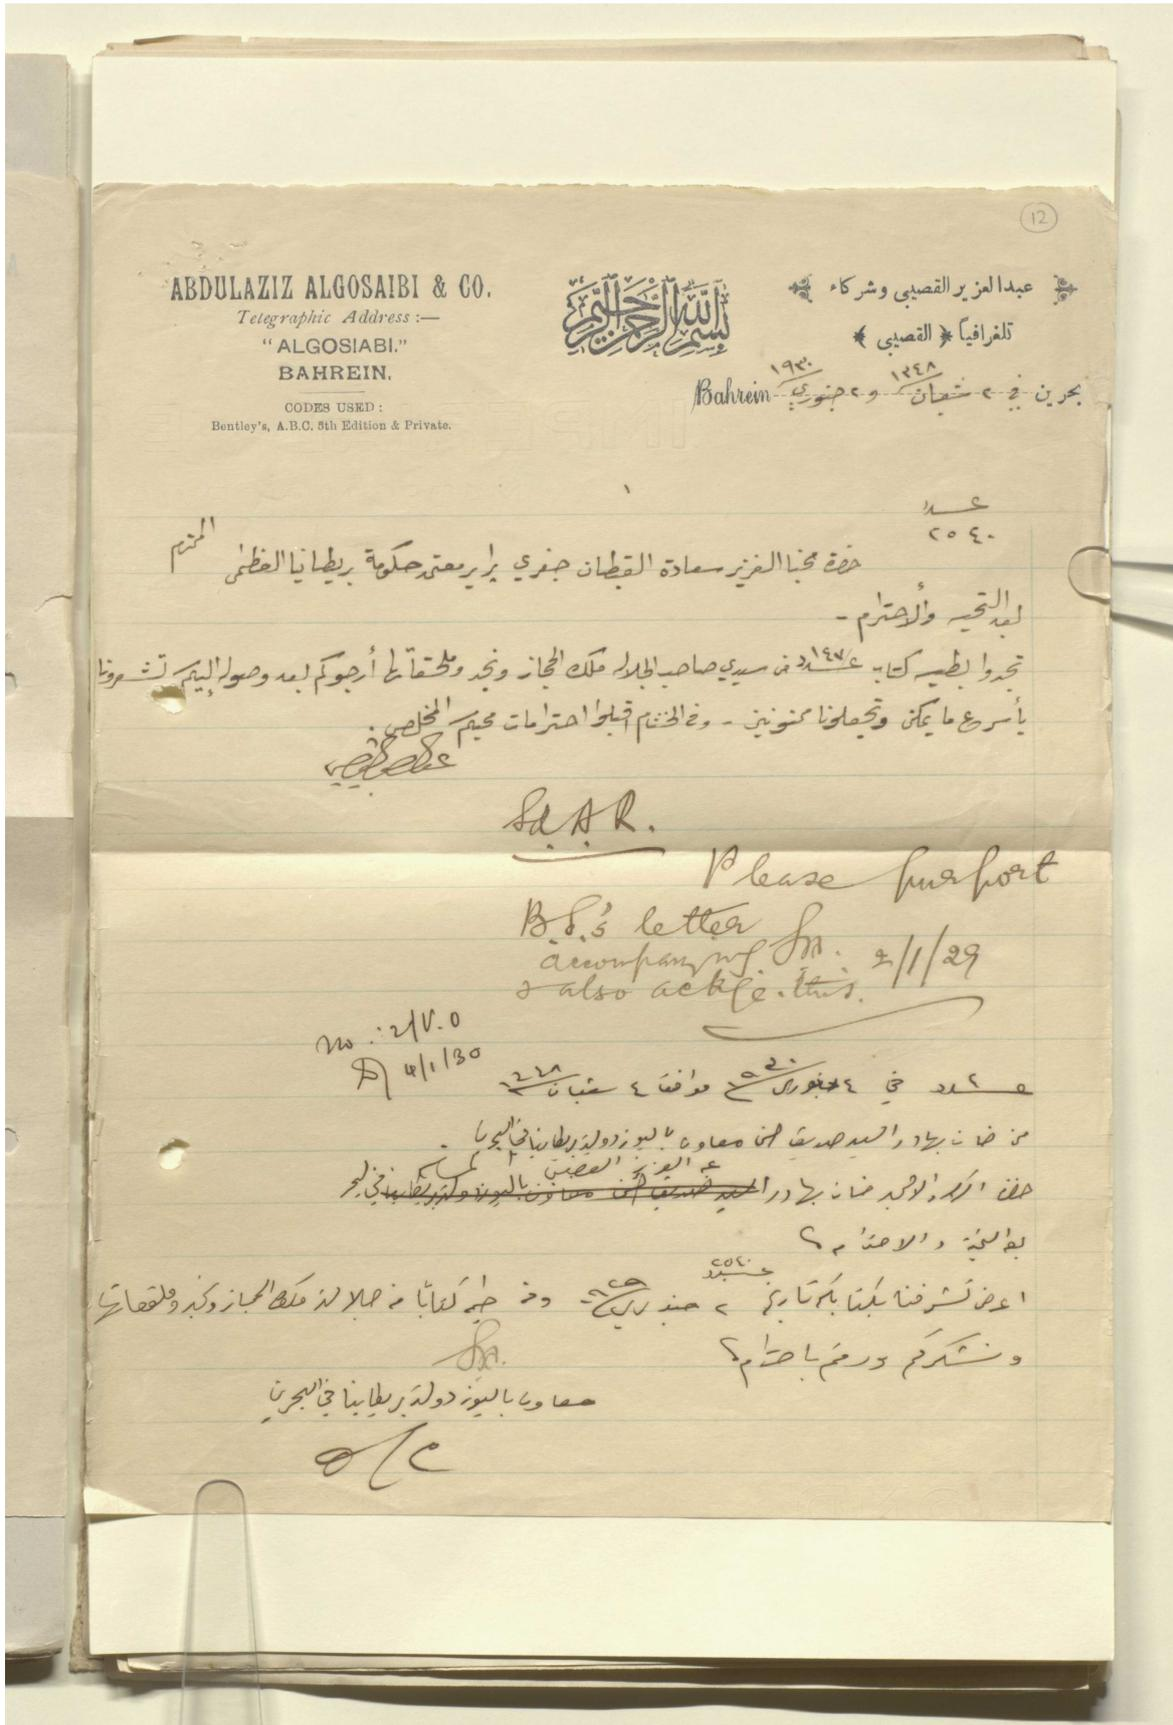 12
ABDULAZIZ ALGOSAIBI & CO.
Telegraphic Address :—
"ALGOSIABI."
BAHREIN.
CODES USED :
Bentley's, A.B.C. 5th Edition & Private.
بسم الله الرحمن الرحيم
عبدالعزيز القصيبي وشركاء
تلغرافياً ﴿ القصيبي ﴾
Bahrein بحرين في ٢ شعبان ١٣٤٨ و ٢ جنوري ١٩٣٠
عدد
٢٥٤٠
حضرة محبنا العزيز سعادة القبطان جفري برايير معتمد حكومة بريطانيا العظمى المحترم
بعد التحيه والأحترام -
تجدوا بطيه كتاب عدد ١٤٧ من سيدي صاحب الجلاله ملك الحجاز ونجد وملحقاتها أرجوكم بعد وصوله إليكم تشعرونا
بأسرع ما يمكن وتجعلونا ممنونين - وفي الختام اقبلوا احترامات محبكم المخلص .
Sd. A. R.
Please purport
B.S.'s letter
accompanying 2/1/29
& also ackge. this.
no : 2/V.0
4/1/30
عدد ٢ في ٤ جنوري ١٩٣٠ موافق ٤ شعبان ١٣٤٨
من خان بهادر السيد صديق حسن معاون باليوز دولة بريطانيا في البحرين .
حضرة الاكرم الامجد خان بهادر عبد العزيز القصيبي
بعد التحية والاحترام
اعرض تشرفنا بكتابكم تاريخ ٢ جنوري عدد ٢٥٤٠ وفي طيه كتابًا من جلالة ملك الحجاز ونجد وملحقاتها
ونشكركم ودمتم باحترام
معاون باليوز دولة بريطانيا في البحرين